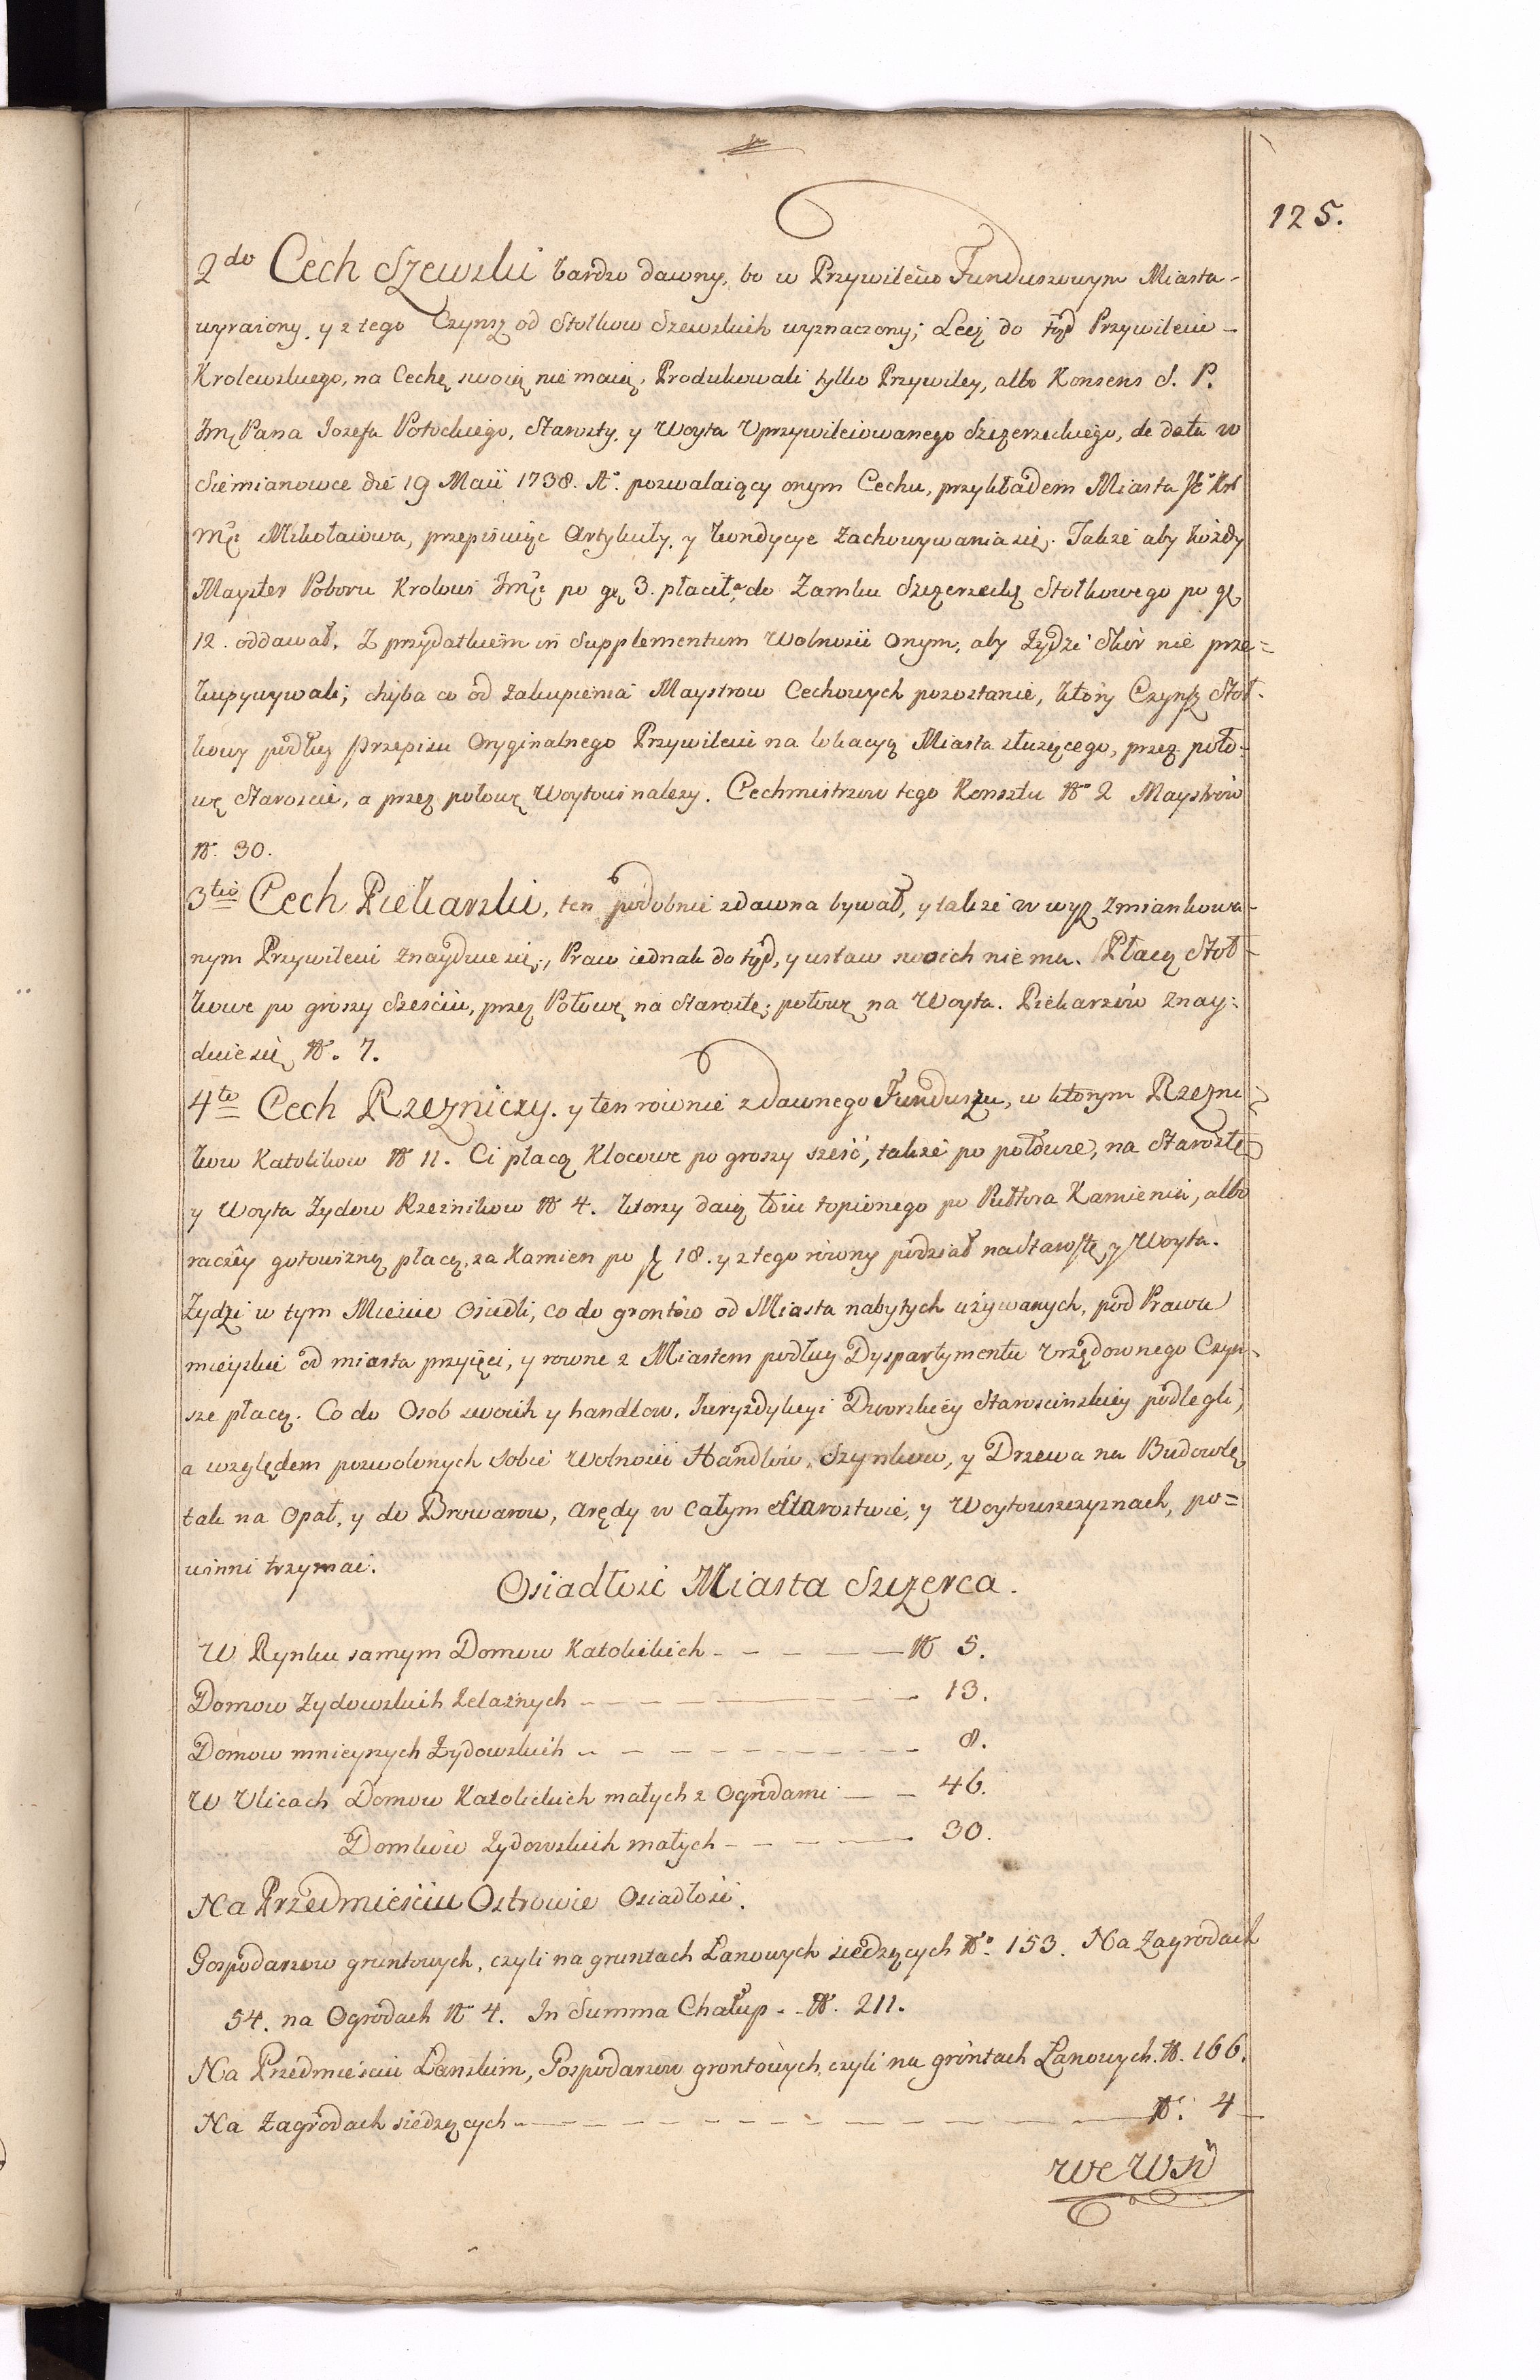 125.
2do Cech Szewski bardzo dawny, bo w Przywileiu Funduszowym Miasta-
wyraiony, y z tego Czynsz od Stołkow Szewskich wyznaczony; Lecz do tąd Przywileiu-
Krolewskiego, na Cechę swoią nie maią, Produkowali tylko Przywiley, albo Konsens S. P.
Jmć Pana Jozefa Potockiego, Starosty, y Woyta Uprzywileiowanego Szczerzeckiego, de data w
Siemianowce die 19 Maii 1738. Ao. pozwalaiący onym Cechu, przykładem Miasta
Mikołaiowa, przepisuiąc Artykuły, y kondycye zachowywania się. Także aby kożdy
Mayster Poboru Krolowi Jmć po gr 3. płacił, do Zamku Szczerzecką Stołkowego po gr
12. oddawał. Z przydatkiem in Supplementum Wolności onym, aby Żydzi Skór nie prze=
kupywywali; chyba co od zakupienia Maystrow Cechowych pozostanie, ktory Czynsz Stoł-
kowy podług przepisu Oryginalnego Przywileiu na lokacyą Miasta służącego, przez poło-
wę Staroscie, a przez połowę Woytowi nalezy. Cechmistrzow tego Konsztu No 2 Maystrów
No. 30.
3tio Cech Piekarski, ten podobnie zdawna bywał, y także w wyz zmiankowa-
nym Przywileiu znayduie się, Praw iednak do tąd, y ustaw swoich nie ma. Płacą Stoł-
kowe po groszy Sześciu, przez Połowę na Starostę, połowę na Woyta. Piekarzów znay-
duie się No. 7.
4to Cech Rzezniczy. y ten rownie z dawnego Funduszu, w ktorym Rzezni-
kow Katolikow No 11. Ci płacą Klocowe po groszy sześć, także po połowie, na Starostę
y Woyta Zydow Rzeznikow No 4. ktorzy daią łoiu topionego po Pułtora Kamienia, albo
raczey gotowizną płacą, za Kamien po zł 18. y z tego rowny podział na Starostę y Woyta.
Żydzi w tym Mieście Osiedli, co do grontów od Miasta nabytych używanych, pod Prawo
mieyskie od miasta przyięci, y rowne z Miastem podług Dyspartymentu Urzędownego Czyn-
sze płacą. Co do Osob swoich y handlow, Juryzdykcyi Dworskiey Starościńskiey podlegli,
a względem pozwolonych sobie Wolności Handlów, Szynkow, y Drzewa na Budowlę
tak na Opał, y do Browarow, arędy w całym Starostwie, y Woytowszczyznach, po=
winni trzymać.
Osiadłość Miasta Szczerca.
W Rynku samym Domow Katolickich - - - - No 5.
Domow Zydowskich Zelaznych - - - - 13.
Domow mnieyszych Żydowskich - - - - 8.
W Ulicach Domow Katolickich małych z Ogrodami - - 46.
Domków Zydowskich małych - - - - 30.
Na Przedmieściu Ostrowie Osiadłość.
Gospodarzow gruntowych, czyli na gruntach Łanowych siedzących No. 153. Na Zagrodach
54. na Ogrodach No 4. In Summa Chałup - No. 211.
Na Przedmieściu Lanskim, Gospodarzow grontowych, czyli na gróntach Łanowych. No. 166.
Na Zagrodach siedzących - - - - No. 4
We Wsi